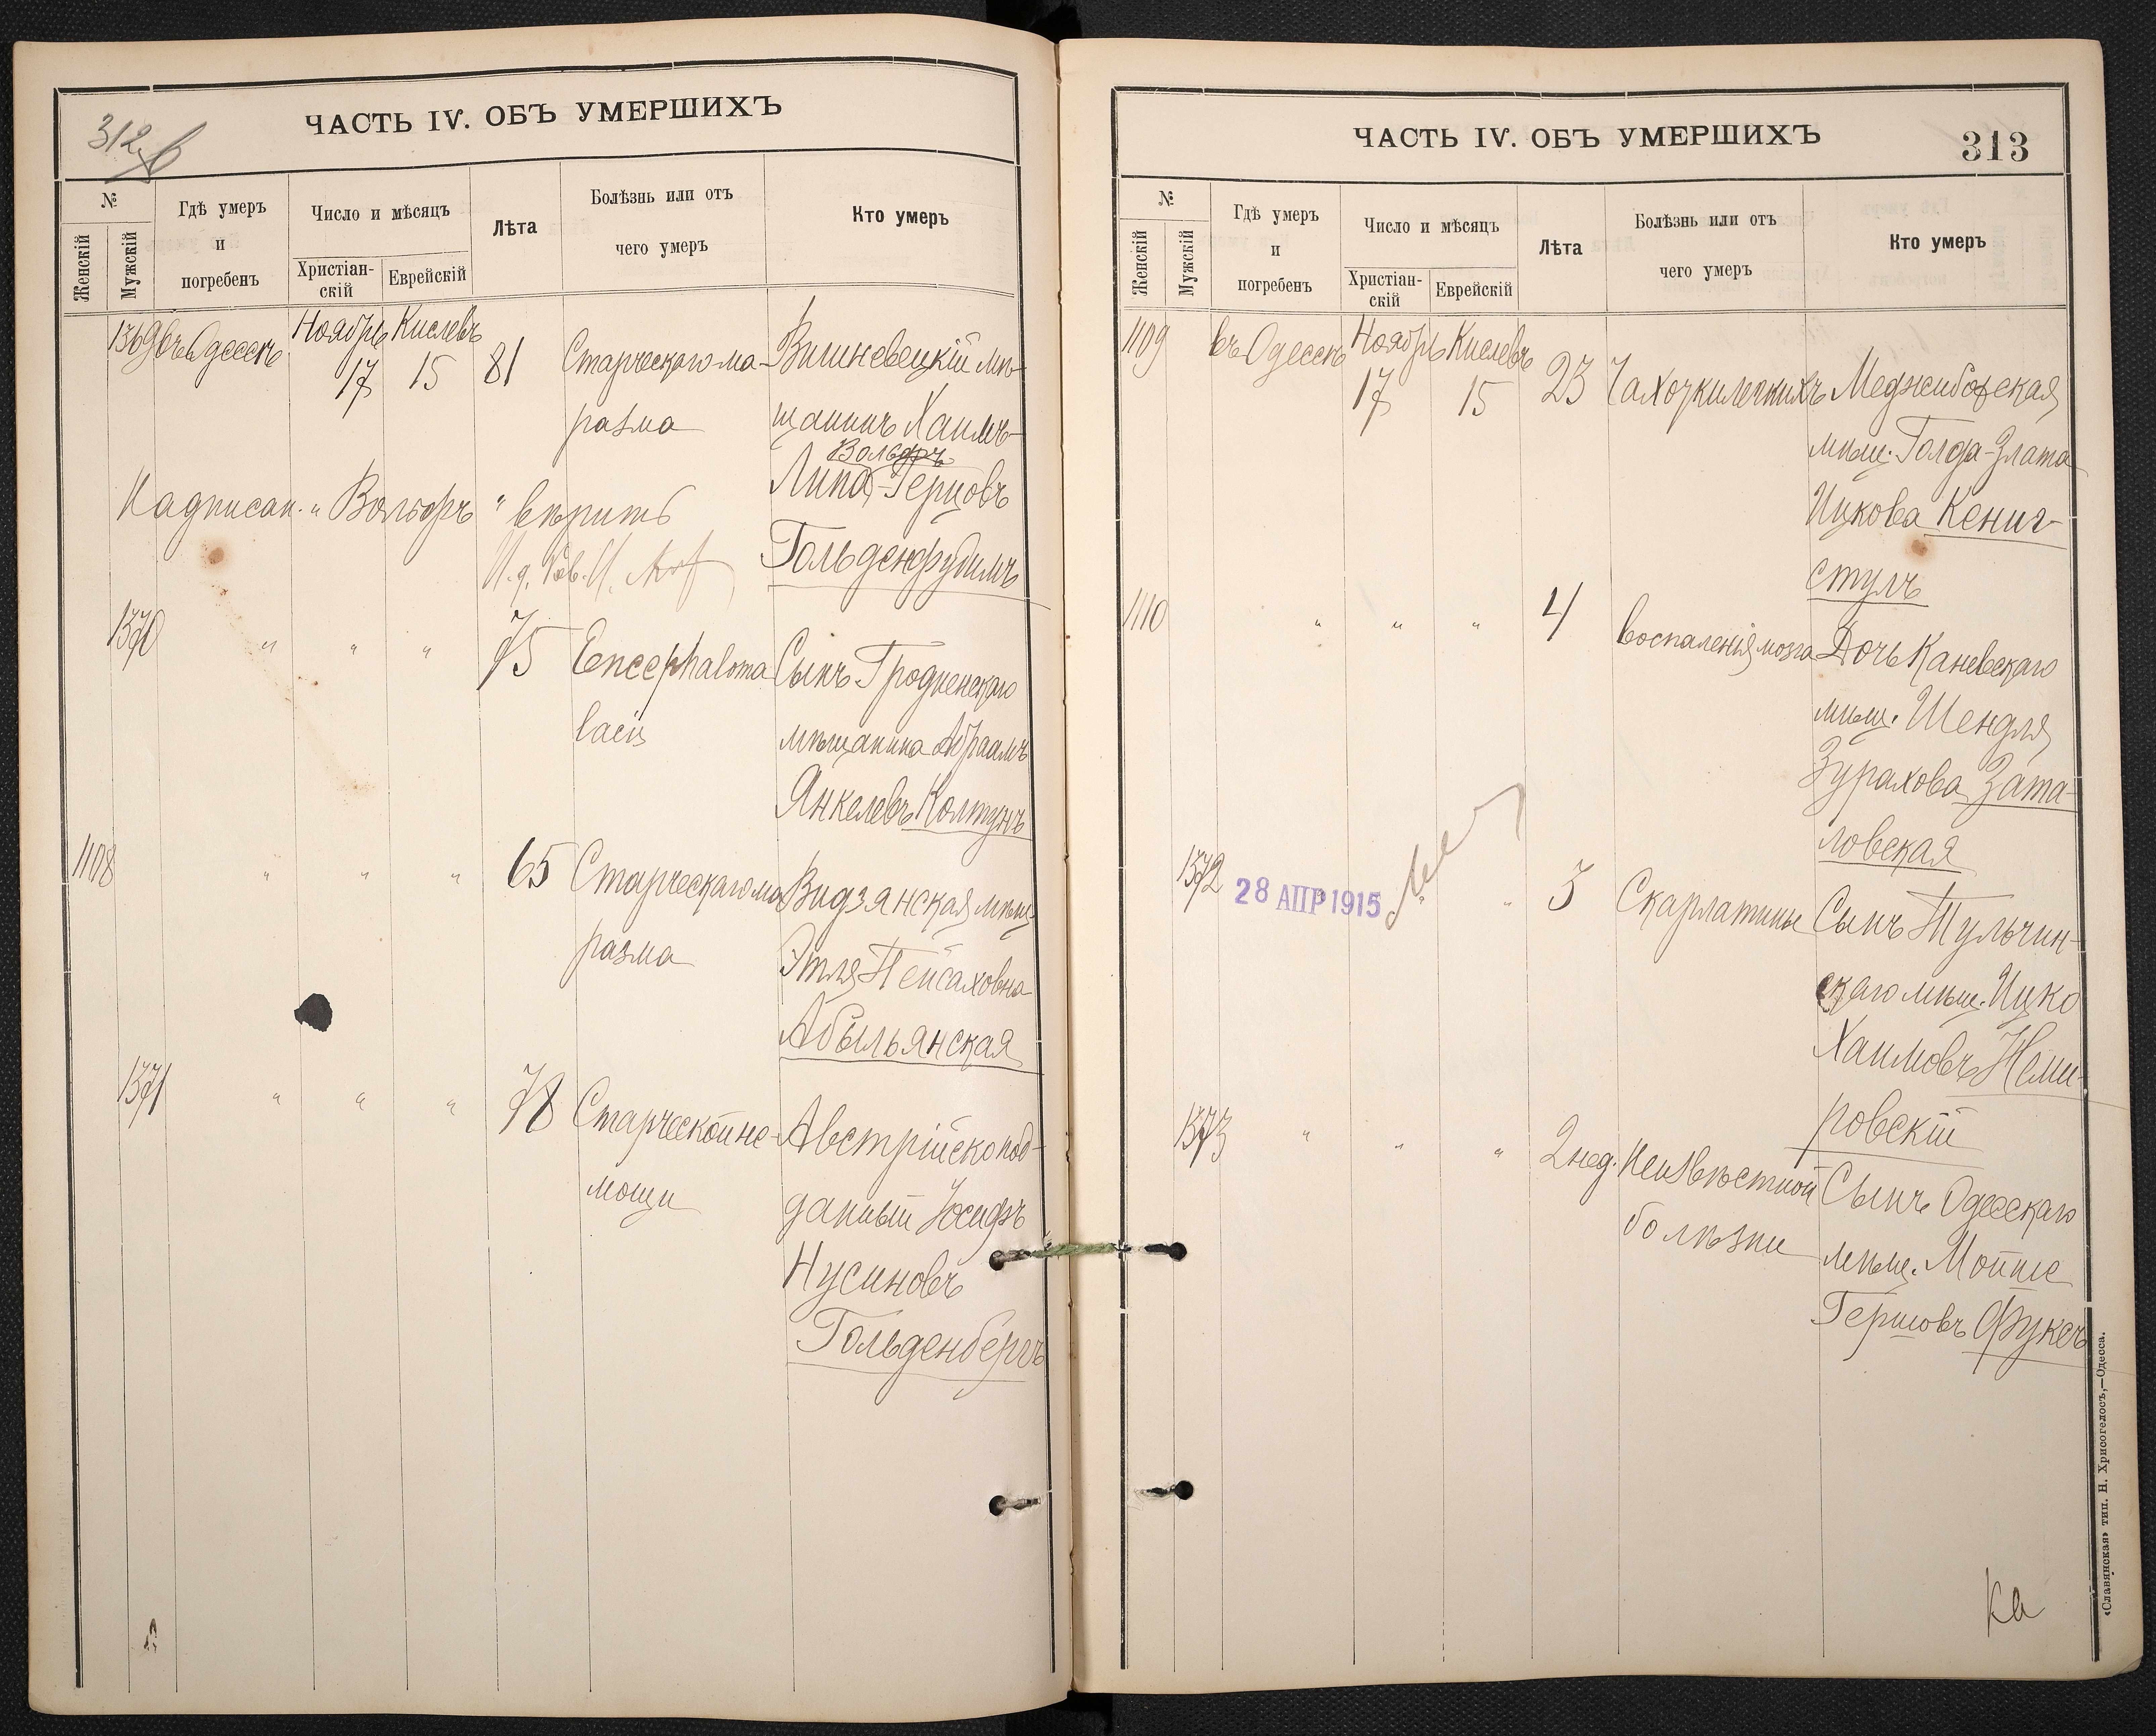 312
ЧАСТЬ IV. ОБЪ УМЕРШИХЪ
№
Женскій
Мужскій
Гдѣ умеръ
и
погребенъ
Число и мѣсяцъ
Христіан-
скій
Еврейскій
Лѣта
Болѣзнь или отъ
чего умеръ
Кто умеръ
1369 въ Одессѣ Ноябрь 17 Кислевъ 15 81 Старческаго ма- Вишневецкій мѣ-
разма щанинъ Хаимъ-
Вольфъ
Липа-Герцовъ
Надписан. „Вольфъ“ вѣрить
Гольденфудимъ
1370 " " " 75 Encephaloma Сынъ Гродненскаго
lacis мѣщанина Абраамъ
Янкелевъ Колтунъ
1108 " " " 65 Старческаго ма Видзянская мѣщ.
разма Этля Пейсаховна
Абыльянская
1371 " " " 78 Старческой не- Австрійско под-
мощи данный Іосифъ
Нусиновъ
Гольденбергъ
ЧАСТЬ IV. ОБЪ УМЕРШИХЪ
313
№
Женскій
Мужскій
Гдѣ умеръ
и
погребенъ
Число и мѣсяцъ
Христіан-
скій
Еврейскій
Лѣта
Болѣзнь или отъ
чего умеръ
Кто умеръ
1109 въ Одессѣ Ноябрь 17 Кислевъ 15 23 Чахотки легкихъ Меджибожская
мѣщ. Голда-Злата
Ицкова Кениг-
стулъ
1110 " " " 4 Воспаленія мозга Дочь Каневскаго
мѣщ. Шендля
Зурахова Зата-
ловская
1372 28 АПР 1915 " " 3 Скарлатины Сынъ Тульчин-
скаго мѣщ. Ицко
Хаимовъ Неми-
ровскій
1373 " " " 2 нед. Неизвѣстной Сынъ Одесскаго
болѣзни мѣщ. Мойше
Гершовъ Фуксъ
ка
«Славянская» тип. Н. Хрисогелосъ,—Одесса.